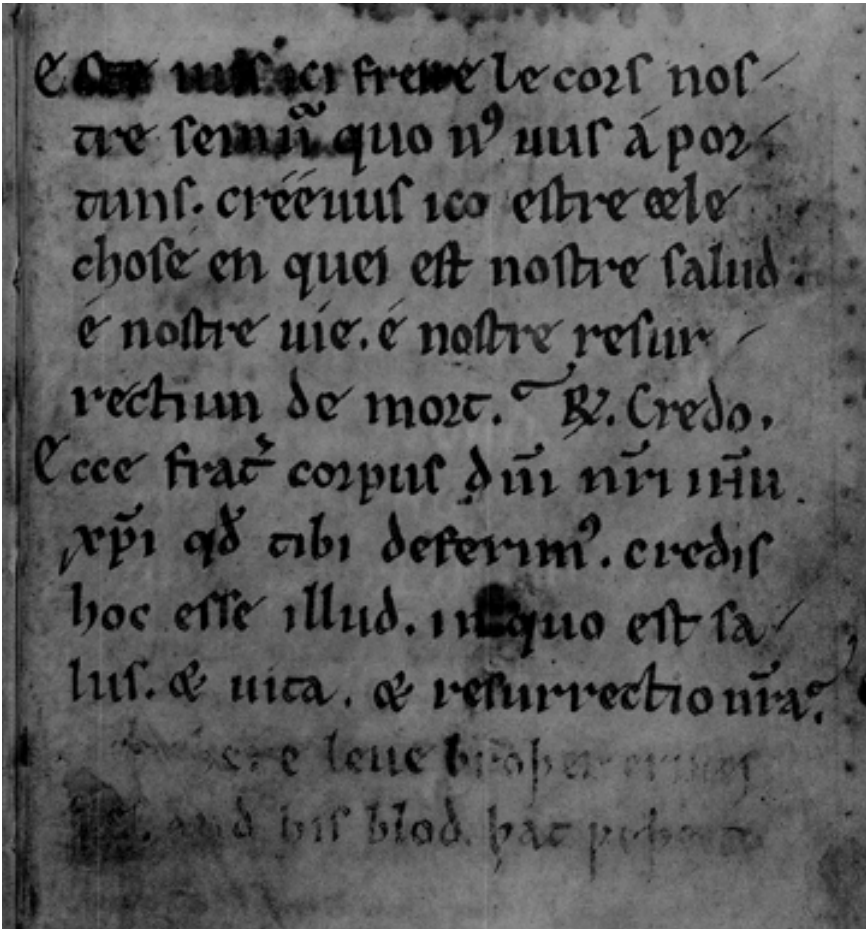 uus ici frere le cors noſ
tre ſeinũ quo n᷒ uuſ á por
tunſ. crééuuſ ico eſtre cele
choſe en quei eſt noſtre ſalud:
é noſtre uie. é noſtre reſur
rectiun de mort. R̷. Credo.
Ecce frat̄ corpuſ dñi nr̄i ih̄u
xp̄i qđ tibi deferim᷒. crediſ
hoc eſſe illud. in quo eſt ſa
luſ. & uita. & reſurrectio nr̄a.
leue broþer
and hiſ blod. þat